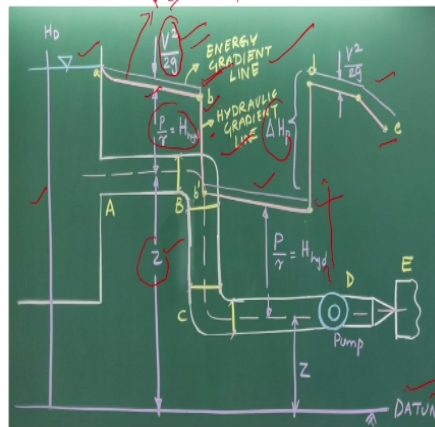 H_D
V²/2g
ENERGY
GRADIENT
LINE
a
b
HYDRAULIC
GRADIENT
LINE
P/γ = H_hyd
ΔH_p
d
V²/2g
e
A
B
b'
Z
P/γ = H_hyd
C
D
E
Pump
Z
DATUM